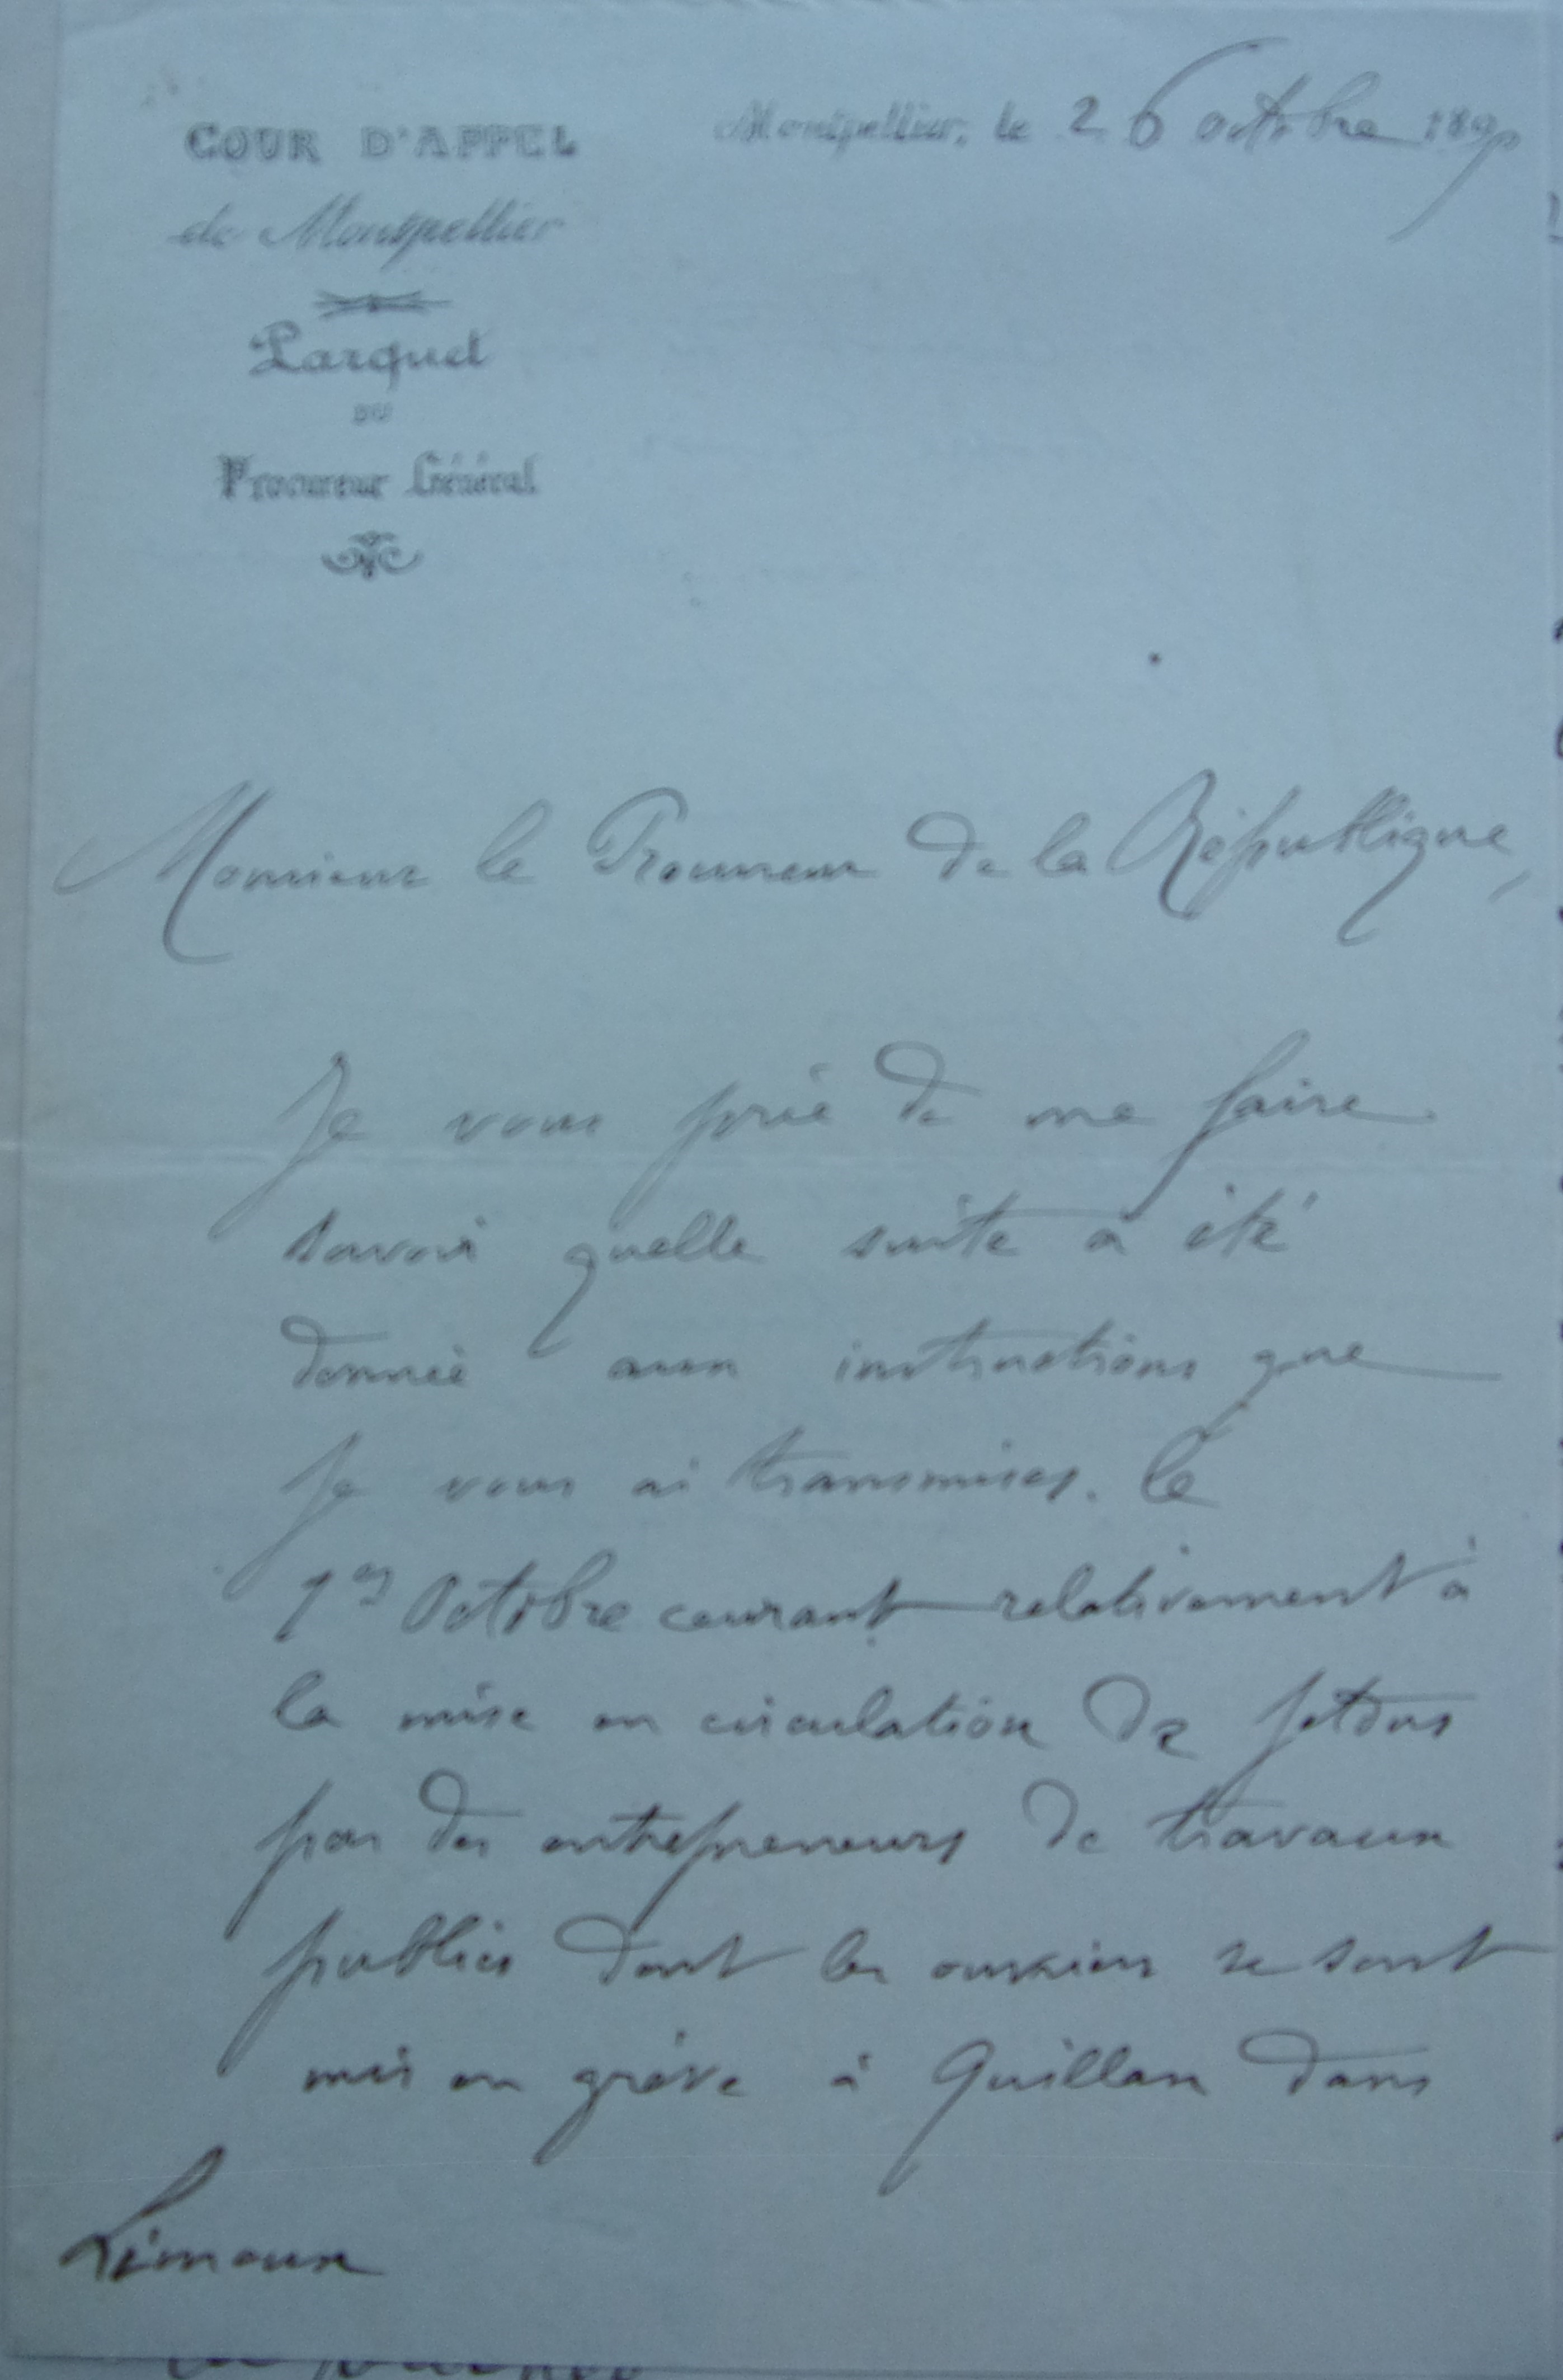 COUR D'APPEL
de Montpellier
Parquet
DU
Procureur Général
Montpellier, le 26 octobre 189
Monsieur le Procureur de la République,
Je vous prie de me faire
savoir quelle suite a été
donnée aux instructions que
je vous ai transmises le
1er Octobre courant relativement à
la mise en circulation de jetons
par des entrepreneurs de travaux
publics dont les ouvriers se sont
mis en grève à Quillan dans
Limoux